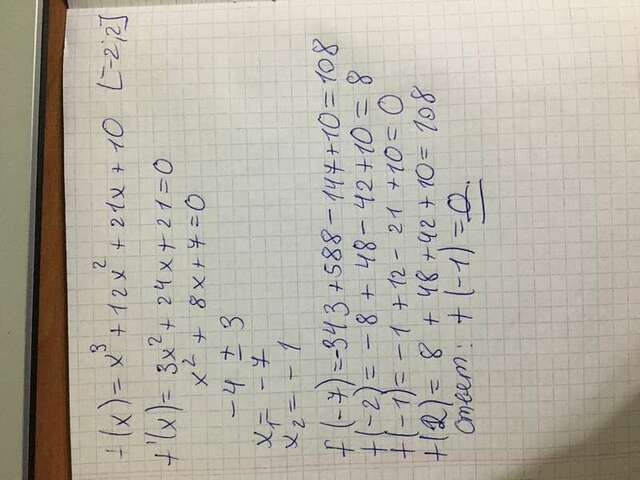 f(x) = x³ + 12x² + 21x + 10 [-2; 2]
f'(x) = 3x² + 24x + 21 = 0
x² + 8x + 7 = 0
-4 ± 3
x₁ = -7
x₂ = -1
f(-7) = -343 + 588 - 147 + 10 = 108
f(-2) = -8 + 48 - 42 + 10 = 8
f(-1) = -1 + 12 - 21 + 10 = 0
f(2) = 8 + 48 + 42 + 10 = 108
Ответ: f(-1) = 0.